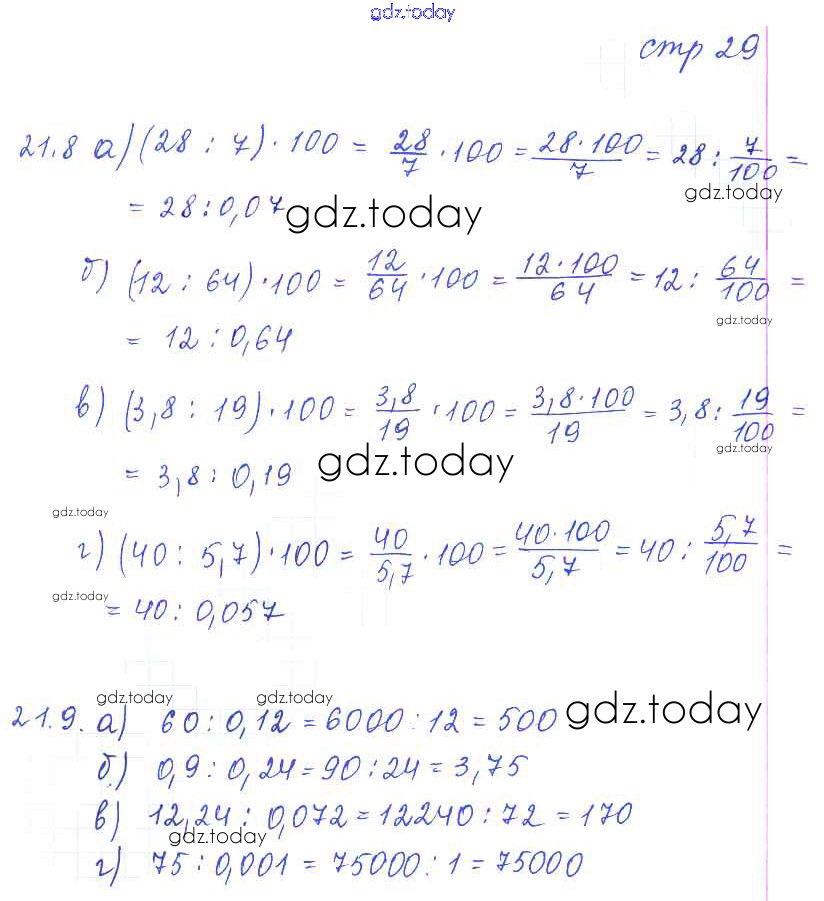 gdz.today
стр 29
21.8 а) (28 : 7) · 100 = 28/7 · 100 = 28·100/7 = 28 : 7/100 =
gdz.today
= 28 : 0,07 gdz.today
б) (12 : 64) · 100 = 12/64 · 100 = 12·100/64 = 12 : 64/100 =
gdz.today
= 12 : 0,64
в) (3,8 : 19) · 100 = 3,8/19 · 100 = 3,8·100/19 = 3,8 : 19/100 =
gdz.today
= 3,8 : 0,19 gdz.today
gdz.today
г) (40 : 5,7) · 100 = 40/5,7 · 100 = 40·100/5,7 = 40 : 5,7/100 =
gdz.today
= 40 : 0,057
gdz.today gdz.today
21.9. а) 60 : 0,12 = 6000 : 12 = 500 gdz.today
б) 0,9 : 0,24 = 90 : 24 = 3,75
в) 12,24 : 0,072 = 12240 : 72 = 170
gdz.today
г) 75 : 0,001 = 75000 : 1 = 75000